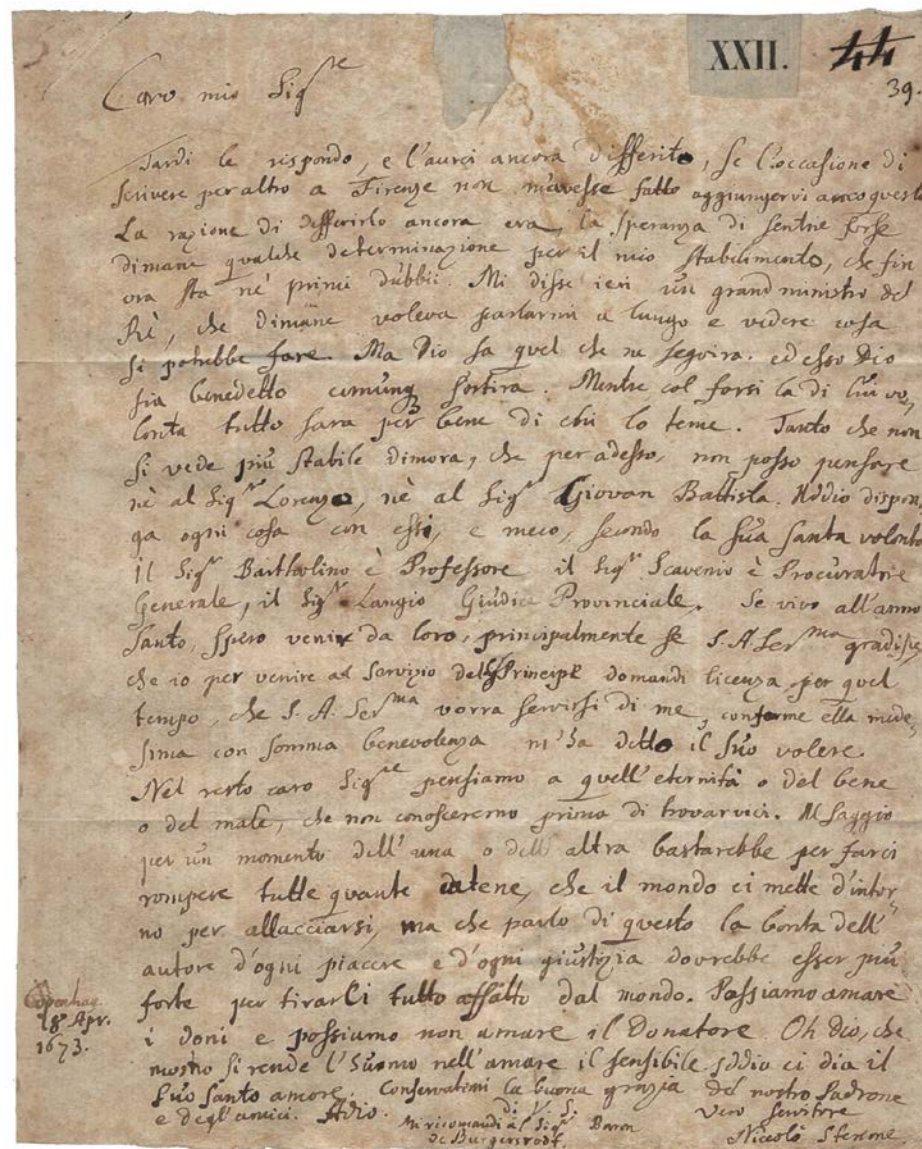 XXII. 44
39.
Caro mio Sigre
Tardi le rispondo, e l'aurei ancora differito, se l'occasione di
scrivere per altro a Firenze non m'avesse fatto aggiungervi anco questa
La razione di differirlo ancora era, la speranza di sentne forse
dimane qualche determinazione per il mio stabilimento, che fin
ora sta nè primi dubbii. Mi disse ieri un grand ministro del
Rè, che dimane voleva parlarmi a lungo e vedere cosa
si potrebbe fare. Ma Dio sa quel che ne seguira. ed esso Dio
sia benedetto comunq sortira. Mentre col farsi la di lui vo,
lonta tutto sara per bene di chi lo teme. Tanto che non
si vede più stabile dimora, che per adesso, non posso pensare
nè al Sigre Lorenzo, nè al Sigre Giovan Battista. Iddio dispon,
ga ogni cosa con essi, e meco, secondo la sua santa volonta
Il Sigre Bartholino è Professore il Sigre Scavenio è Procuratore
Generale, il Sigre Langio Giudice Provinciale. Se vivo all'anno
Santo, spero venir da loro, principalmente se S. A. Serma gradisce,
che io per venire al servizio del Principe domandi licenza per quel
tempo, che S. A. Serma vorra servirsi di me, conforme ella mede,
sima con somma benevolenza m'ha detto il suo volere.
Nel resto caro Sigre pensiamo a quell'eternità o del bene
o del male, che non conosceremo prima di trovarvici. Il saggio
per un momento dell'una o dell'altra bastarebbe per farci
rompere tutte quante catene, che il mondo ci mette d'intor,
no per allacciarsi, ma che parlo di questo la bonta dell'
autore d'ogni piacere e d'ogni giustizia dovrebbe esser più
forte per tirarci tutto affatto dal mondo. Possiamo amare
i doni e possiamo non amare il Donatore Oh dio, che
mostro si rende l'huomo nell'amare il sensibile iddio ci dia il
suo santo amore. Conservatemi la buona grazia del nostro Padrone
e degl'amici. Adio.
di V. S.
Mi ricomandi al Sigre Baron
de Burgersrodt.
vero servitore
Niccolò Stenone
Copenhag.
18 Apr.
1673.